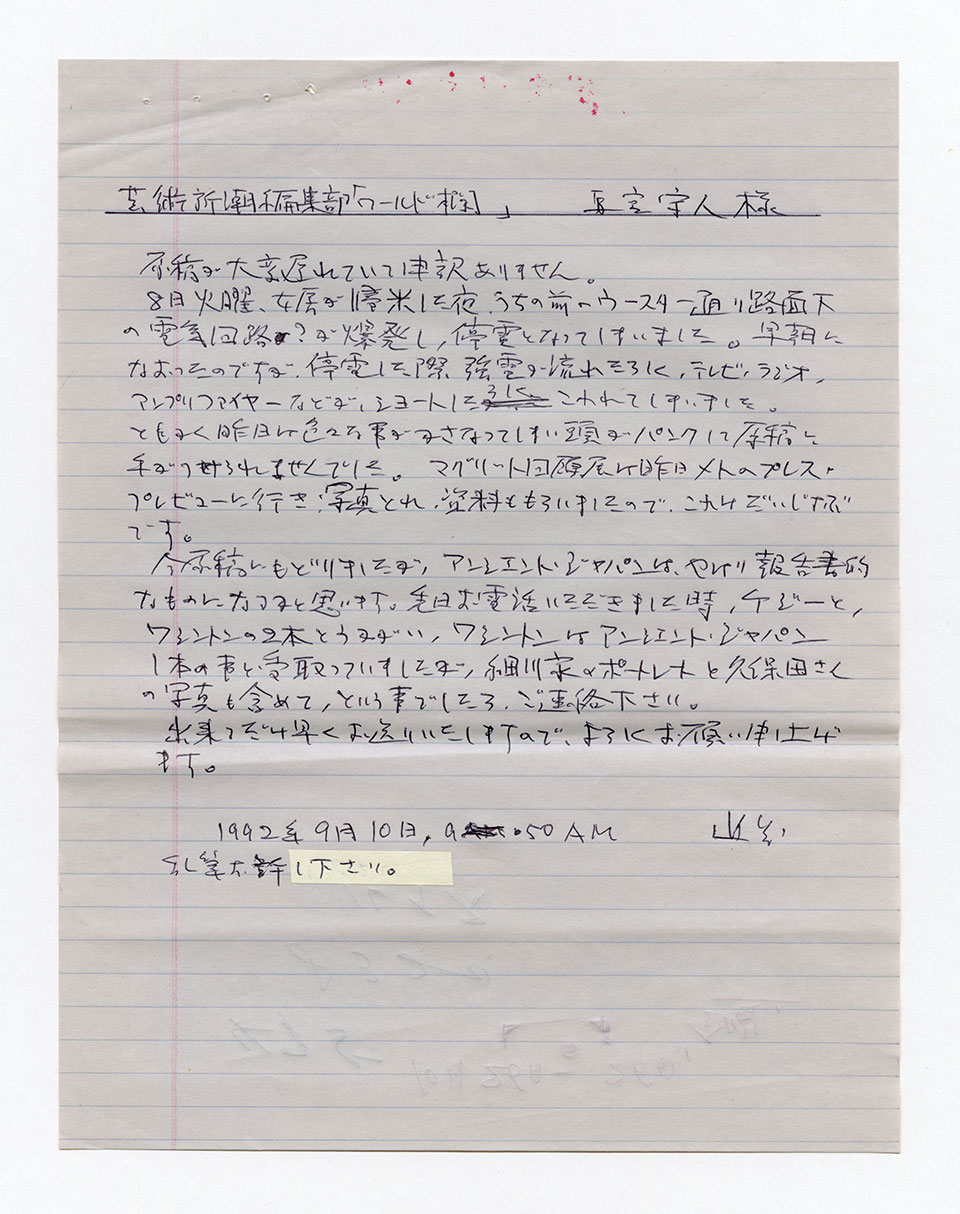 芸術新潮編集部「ワールド欄」 様
原稿が大変遅れていて申訳ありません。
8日火曜、女房が帰米した夜、うちの前のウースター通り路面下
の電気回路？が爆発し、停電となってしまいました。早朝に
なおったのですが、停電した際強電が流れたらしく、テレビ、ラジオ、
アンプリファイヤーなどが、ショートした こわれてしまいました。
ともかく昨日は色々な事がかさなってしまい頭がパンクして原稿に
手がつけられませんでした。マグリット回顧展は昨日メトのプレス・
プレビューに行き、写真とれ、資料ももらいましたので、これはだいじょうぶ
です。
今原稿にもどりましたが、アンシエント・ジャパンは、やはり報告書的
なものになると思います。先日お電話いただきました時、ケージと、
ワシントンの2本とうかがい、ワシントンはアンシエント・ジャパン
1本の事と受取っていましたが、細川家のポートレートと久保田さん
の写真も含めて、という事でしたら、ご連絡下さい。
出来るだけ早くお送りいたしますので、よろしくお願い申上げ
ます。
1992年9月10日, 9 .50 AM
乱筆お許し下さい。